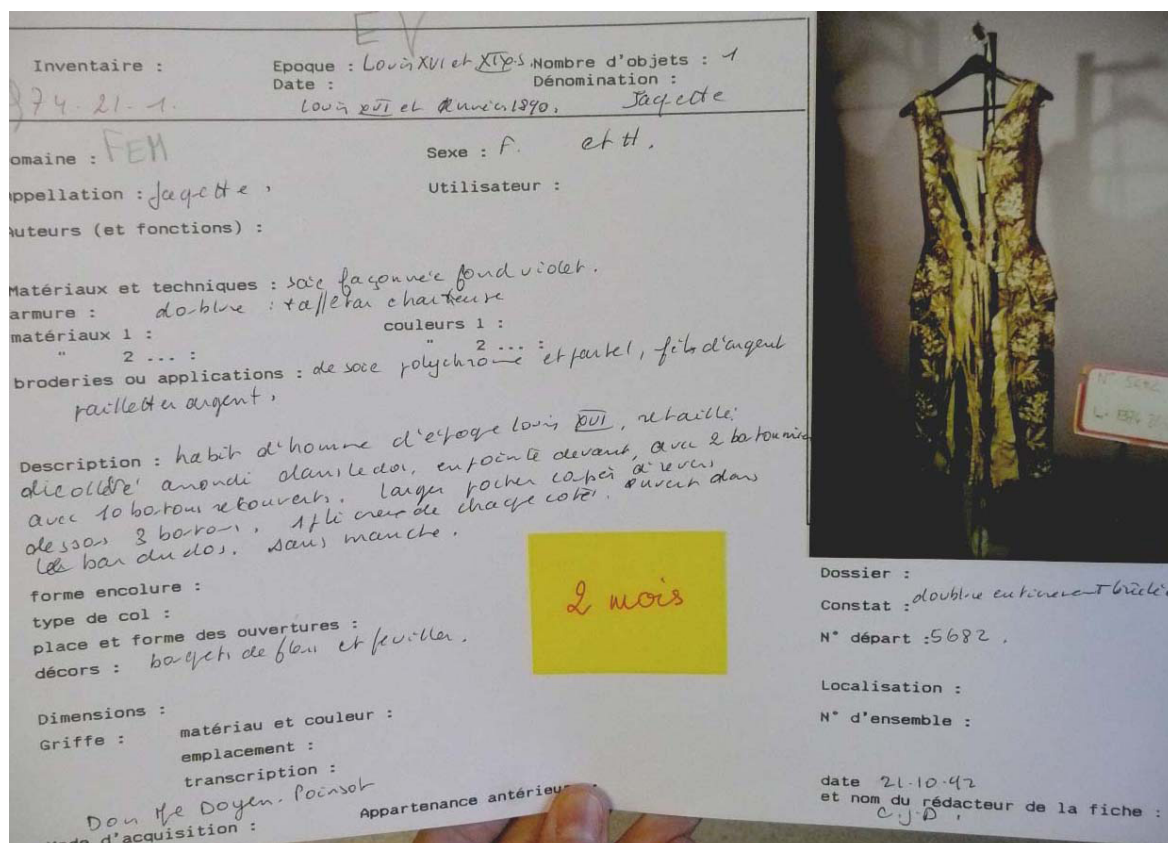 EV
Inventaire :
974-21-1.
Epoque : Louis XVI et XIXe s. Nombre d'objets : 1
Date :
Dénomination :
Louis XVI et années 1890.
Jaquette
omaine : FEM
Sexe : F. et H.
ppellation : Jaquette,
Utilisateur :
Auteurs (et fonctions) :
Matériaux et techniques : soie façonnée fond violet.
armure : doublure : taffetas chartreuse
matériaux 1 :
couleurs 1 :
" 2 ... :
" 2 ... :
broderies ou applications : de soie polychrome et pastel, fils d'argent
paillettes argent,
Description : habit d'homme d'époque Louis XVI, retaillé
décolleté arrondi dans le dos, en pointe devant, avec 2 boutonnières
avec 10 boutons recouverts. larges poches coupées à revers
dessous 3 boutons, 1 pli creux de chaque côté. ouvert dans
le bas du dos. sans manche.
forme encolure :
type de col :
place et forme des ouvertures :
décors : bouquets de fleurs et feuilles.
Dimensions :
Griffe : matériau et couleur :
emplacement :
transcription :
Don Me Doyen-Poinsot
d'acquisition :
Appartenance antérieu
2 mois
N° 5682
Dossier :
Constat : doublure entièrement brûlée
N° départ : 5682.
Localisation :
N° d'ensemble :
date 21-10-92
et nom du rédacteur de la fiche :
C.J.D.